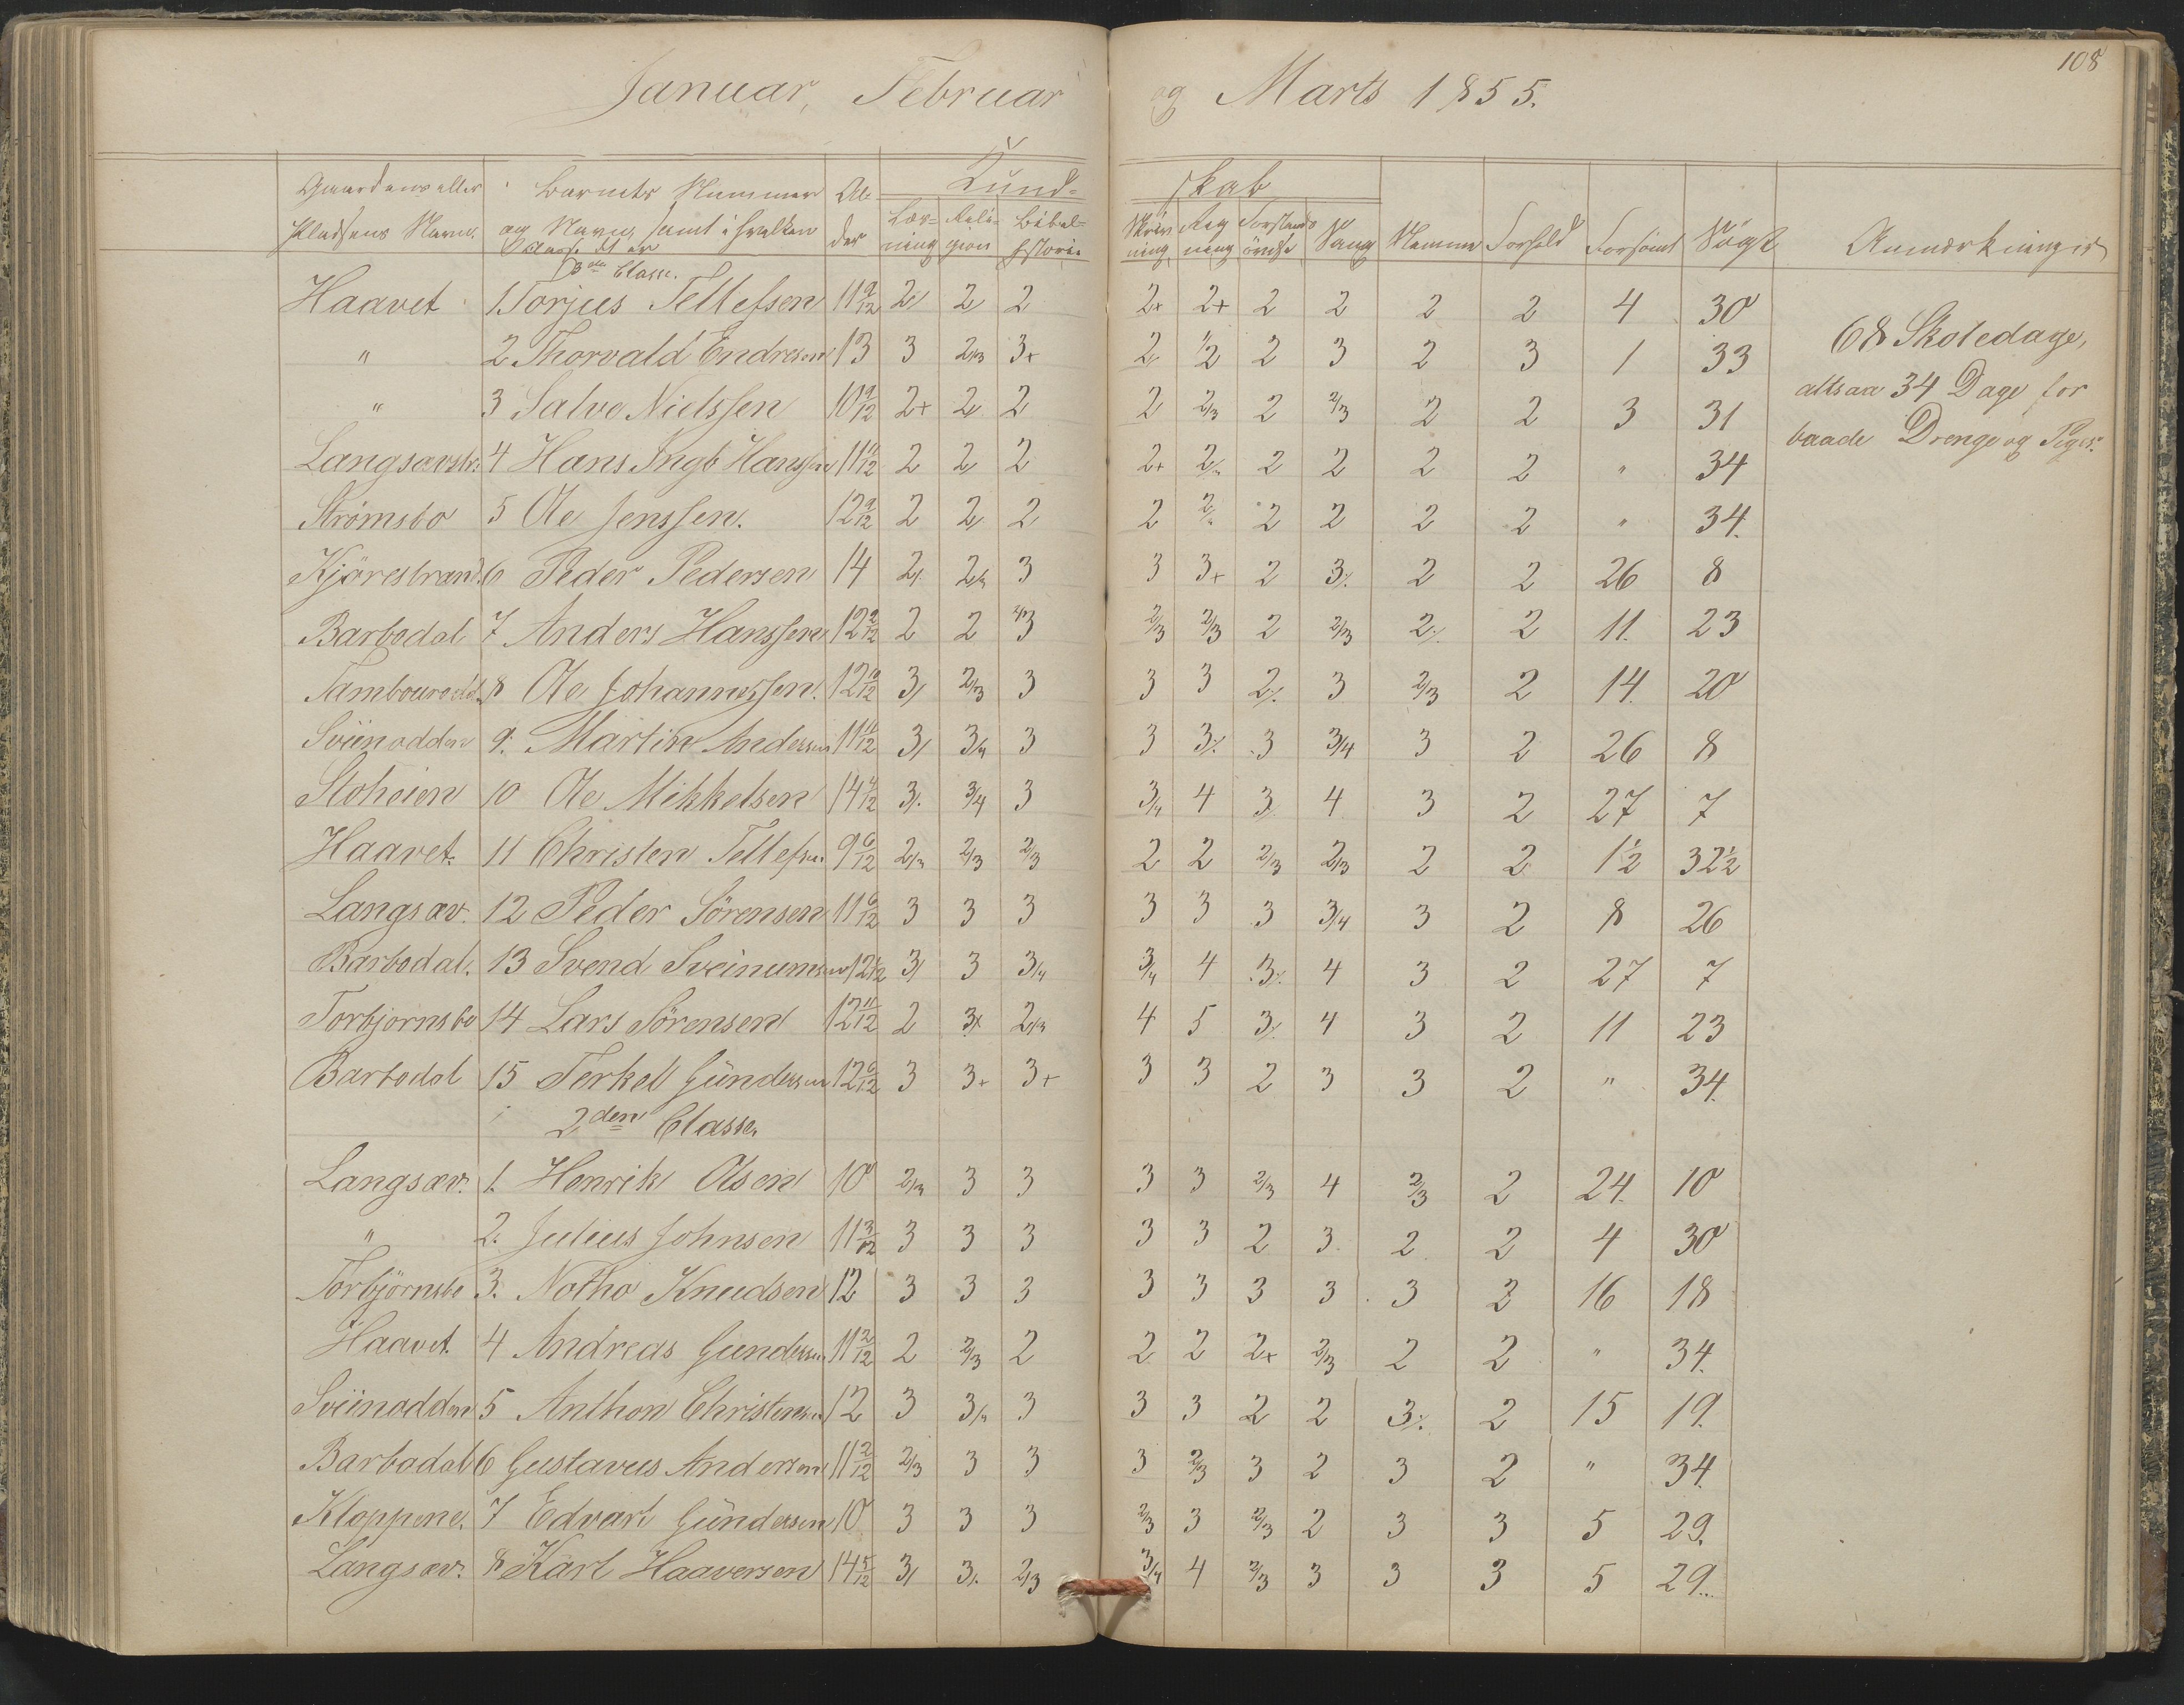 108
Januar, Februar og Marts 1855.
Gaardens eller Pladsens Navn. Barnets Nummer og Navn, samt i hvilken Classe det er Al- der Kund- skab
Læs- ning Reli- gion Bibel- historie Skriv ning Reg ning Forstands övelse Sang Nemme Forhold Forsömt Sögt Anmærkninger
3die Classe.
Haavet 1. Torjus Tellefsen 11 9/12 2/ 2/ 2 2+ 2+ 2 2 2 2 4 30
" 2 Thorvald Endresen 13 3 2/3 3+ 2/ 1/2 2 3 2 3 1 33
" 3 Salve Nielssen 10 9/12 2+ 2/ 2 2 2/3 2 2/3 2 2 3 31
Langsævstr. 4 Hans Ingb Hanssen 2 2 2 2+ 2 2 2 2 " 34
Strømsbo 5 Ole Jenssen. 12 9/12 2 2 2 2 2 2 2 2 " 34.
Kjörestrand. 6 Peder Pedersen 14 2/. 2/3 3 3 3+ 2 3/. 2 2 26 8
Barbodal 7 Anders Hanssen 2 2 2/3 2/3 2/3 2 2/3 2/. 2 11. 23
8 Ole Johannessen. 12 10/12 3/ 2/3 3 3 3 2/. 3 2/3 2 14. 20
Sviinodden 9. Martin Anderssen 11 11/12 3/ 3/4 3 3 3/. 3 3/4 3 2 26 8
Stoheien 10 Ole Mikkelsen 14 4/12 3/. 3/4 3 3/4 4 3/. 4 3 2 27 7
Haavet. 11 Christen Tellefsen 9 6/12 2/3 2/3 2/3 2 2 2/3 2/3 2 2 1 1/2 32 1/2
Langsæv. 12 Peder Sörensen 11 6/12 3 3 3 3 3 3 3/4 3 2 8 26
Barbodal. 13 Svend Sveinumsen 3/ 3 3/4 3/4 4 3/. 4 3 2 27 7
Torbjornsbo 14 Lars Sörensen 12 11/12 2 3+ 2/3 4 5 3/. 4 3 2 11 23
Barbodal 15 Terkel Gündersen 12 6/12 3 3+ 3+ 3 3 2 3 3 2 " 34.
2den Classe.
Langsæv. 1. Henrik Olsen 10 2/3 3 3 3 3 2/3 4 2/3 2 24. 10
" 2. Julius Johnsen 11 3/12 3 3 3 3 3 2 3. 2. 2 4 30
Torbjörnsbo 3. Notho Knudsen 12 3 3 3 3 3 3 3 3 2 16 18
Haavet. 4 Andreas Gundersen 11 2/12 2 2/3 2 2 2 2+ 2/3 2 2 " 34.
Sviinodden 5 Anthon Christensen 12 3 3/4 3 3 3 2 2 3/. 2 15 19.
Barbodal 6 Gustavus Andersen 11 2/12 2/3 3 3 3 2/3 3 2 3 2 " 34.
Kloppene. 7 Edvart Gündersen 10 3 3 3 2/3 3 2/3 2 3 3 5 29.
Langsæv. 8 Karl Haaversen 14 5/12 3/ 3/. 2/3 3/4 4 2/3 3 3 3 5 29.
68 Skoledage,
altsaa 34 Dage for
baade Drenge og Piger.